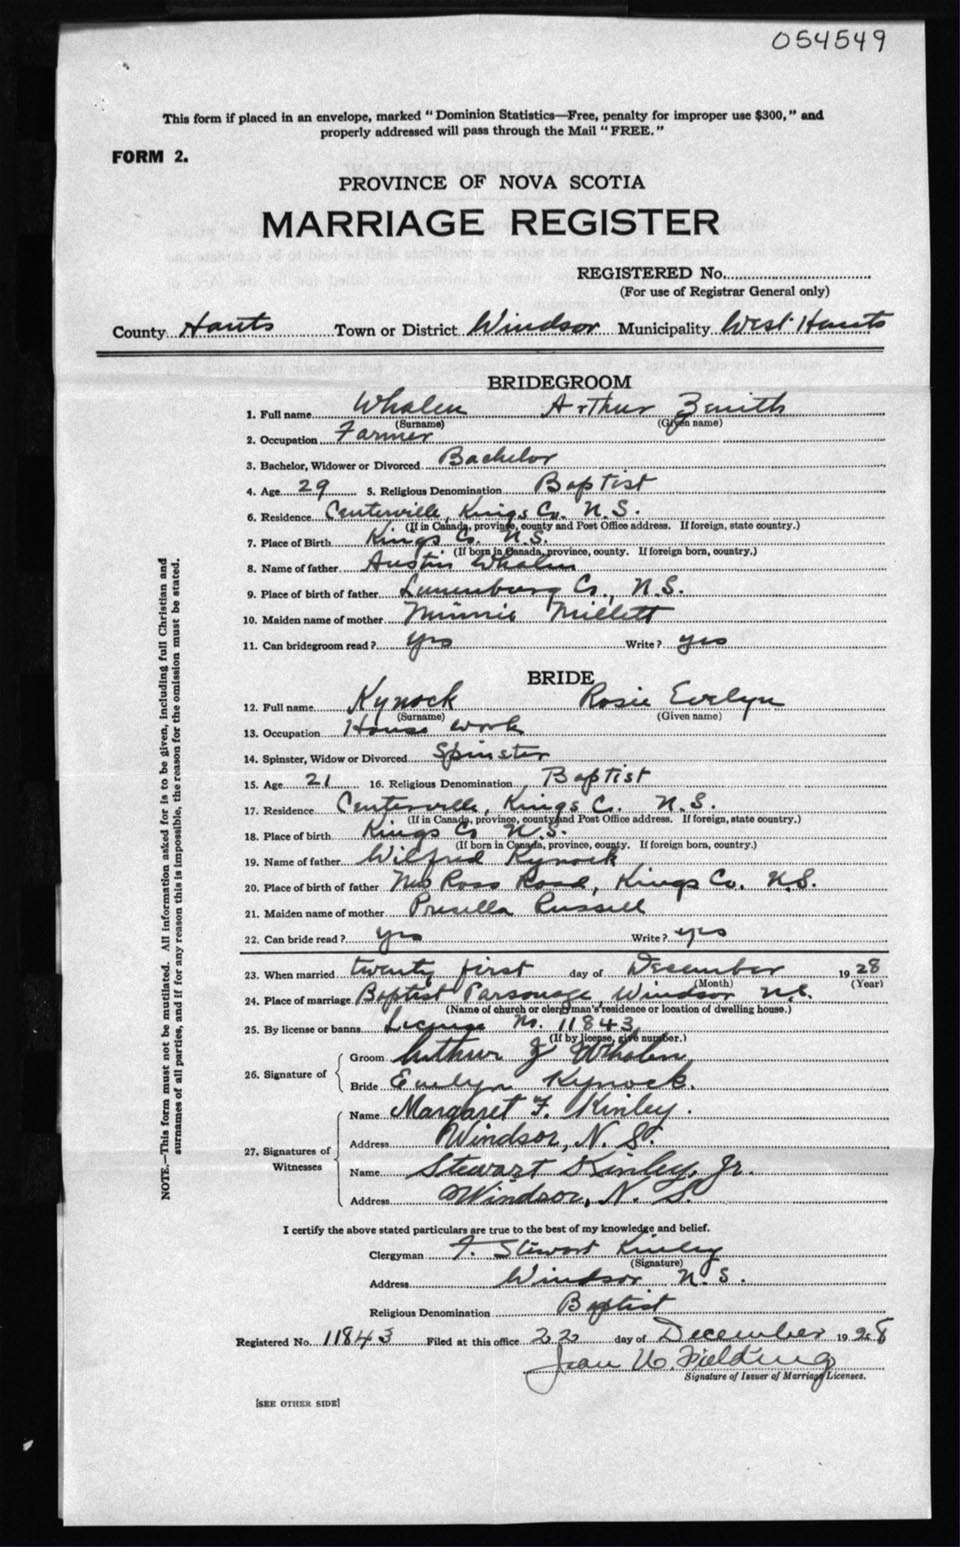 054549
This form if placed in an envelope, marked "Dominion Statistics—Free, penalty for improper use $300," and
properly addressed will pass through the Mail "FREE."
FORM 2.
PROVINCE OF NOVA SCOTIA
MARRIAGE REGISTER
REGISTERED No.
(For use of Registrar General only)
County Hants Town or District Windsor Municipality West Hants
BRIDEGROOM
1. Full name Whalen Arthur Zenith
(Surname) (Given name)
2. Occupation Farmer
3. Bachelor, Widower or Divorced Bachelor
4. Age 29 5. Religious Denomination Baptist
6. Residence Centerville, Kings Co. N.S.
(If in Canada, province, county and Post Office address. If foreign, state country.)
7. Place of Birth Kings Co. N.S.
(If born in Canada, province, county. If foreign born, country.)
8. Name of father Austin Whalen
9. Place of birth of father Lunenburg Co., N.S.
10. Maiden name of mother Minnie Millett
11. Can bridegroom read? yes Write? yes
BRIDE
12. Full name Kynock Rosie Evelyn
(Surname) (Given name)
13. Occupation House work
14. Spinster, Widow or Divorced Spinster
15. Age 21 16. Religious Denomination Baptist
17. Residence Centerville, Kings Co. N.S.
(If in Canada, province, county and Post Office address. If foreign, state country.)
18. Place of birth Kings Co N.S.
(If born in Canada, province, county. If foreign born, country.)
19. Name of father Wilfred Kynock
20. Place of birth of father New Ross Road, Kings Co. N.S.
21. Maiden name of mother Prisilla Russell
22. Can bride read? yes Write? yes
23. When married twenty first day of December 1928
(Month) (Year)
24. Place of marriage Baptist Parsonage, Windsor N.S.
(Name of church or clergyman's residence or location of dwelling house.)
25. By license or banns License No. 11843
(If by license, give number.)
26. Signature of
Groom Arthur Z Whalen
Bride Evelyn Kynock.
27. Signatures of Witnesses
Name Margaret F. Kinley.
Address Windsor, N. S.
Name Stewart Kinley, Jr.
Address Windsor, N. S.
I certify the above stated particulars are true to the best of my knowledge and belief.
Clergyman F. Stewart Kinley
(Signature)
Address Windsor N.S.
Religious Denomination Baptist
Registered No. 11843 Filed at this office 22 day of December 1928
Jean W. Fielding
Signature of Issuer of Marriage Licenses.
[SEE OTHER SIDE]
NOTE.—This form must not be mutilated. All information asked for is to be given, including full Christian and
surnames of all parties, and if for any reason this is impossible, the reason for the omission must be stated.